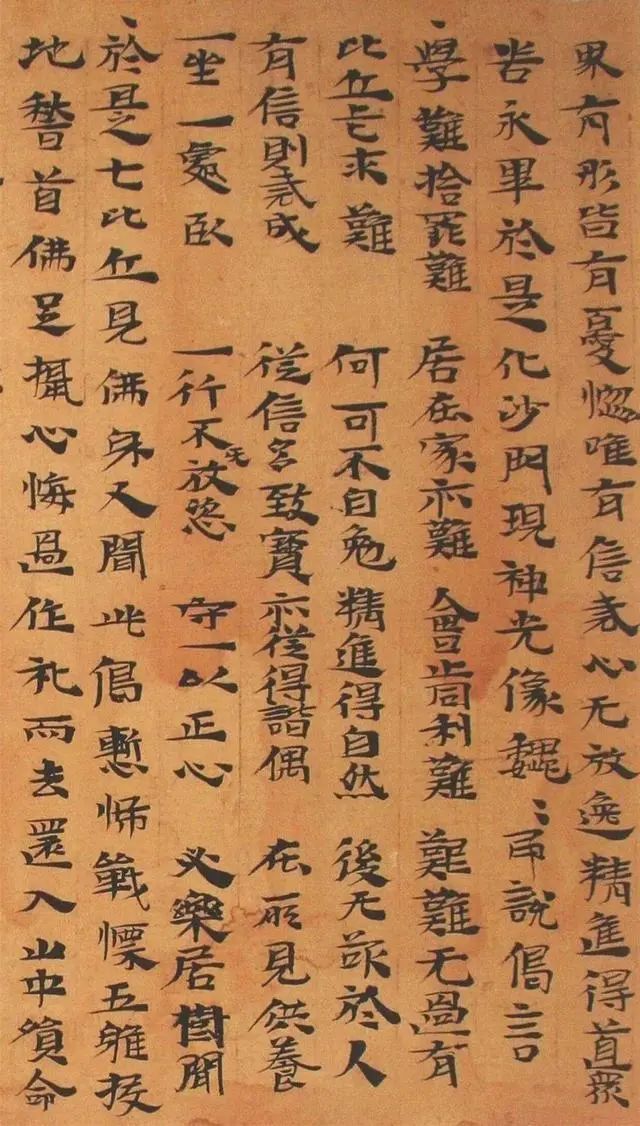 界有形皆有憂惱唯有信戒心无放逸精進得道衆
苦永畢於是化沙門現神光像魏〻即說偈言
學難捨罪難 居在家亦難 會止同利難 艱難无過有
比丘乞求難 何可不自勉 精進得自然 後无欲於人
有信則戒成 從信多致寶 亦從得諧偶 在所見供養
一坐一處臥 一行不放恣 守一以正心 必樂居樹間
於是七比丘見佛身又聞此偈慙怖戰慄五體投
地稽首佛足攝心悔過作礼而去還入山中貟命